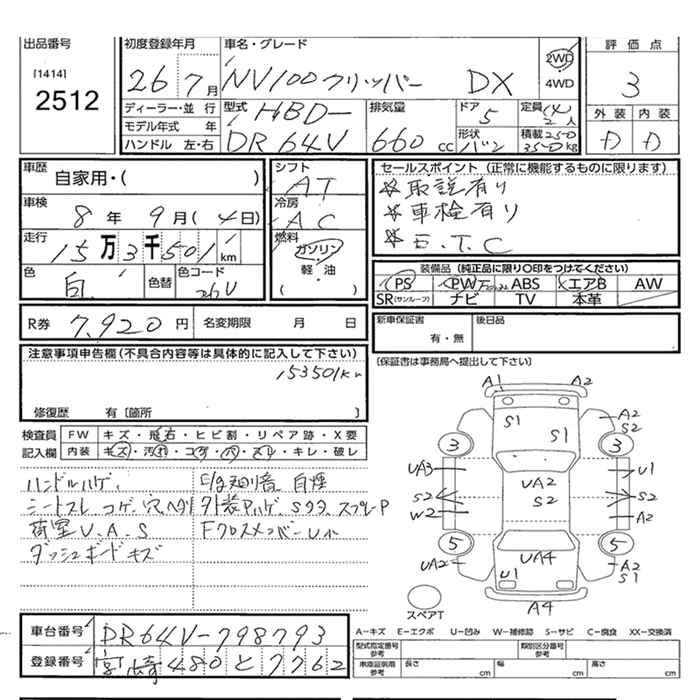 出品番号
[1414]
2512
初度登録年月
26 7月
車名・グレード
NV100クリッパー DX
2WD
4WD
評価点
3
外装 内装
D D
ディーラー・並行
モデル年式 年
ハンドル 左・右
型式
HBD-
DR64V
排気量
660 cc
ドア
5
形状
バン
定員 (4)
2人
積載 250
350kg
車歴
自家用・( )
車検
8年 9月(4日)
走行
15万3千501km
色
白
色替
色コード
26U
シフト
AT
冷房
AC
燃料
ガソリン
軽・油
( )
セールスポイント(正常に機能するものに限ります)
☆取説有り
☆車検有り
☆E.T.C
装備品(純正品に限り○印をつけてください)
PS PW ABS エアB AW
SR(サンルーフ) ナビ TV 本革
R券
7,920円
名変期限 月 日
新車保証書
有・無
後日品
(保証書は事務局へ提出して下さい)
注意事項申告欄(不具合内容等は具体的に記入して下さい)
153501km
修復歴 有〔箇所 〕
検査員 FW キズ・飛石・ヒビ割・リペア跡・X要
記入欄 内装 キズ・汚れ・コゲ・穴・スレ・キレ・破レ
ハンドルハゲ、 E/g廻り音、白煙
シートスレ コゲ、穴、ヘタリ 外装Pハゲ、Sクラ、スプレーP
荷室U.A.S FクロスメンバーU小
ダッシュボードキズ
A1 A2
S1 S1 A2 S2
3 3
UA3 UA2 U1
S2 S2 S2
W2 A2
5 5
UA2 UA4 U1 A2 S1
スペアT A4
車台番号 DR64V-798793
登録番号 宮崎480と7762
A-キズ E-エクボ U-凹み W-補修跡 S-サビ C-腐食 XX-交換済
型式指定番号 参考
類別区分番号 参考
車庫証明用 参考 長さ cm 幅 cm 高さ cm